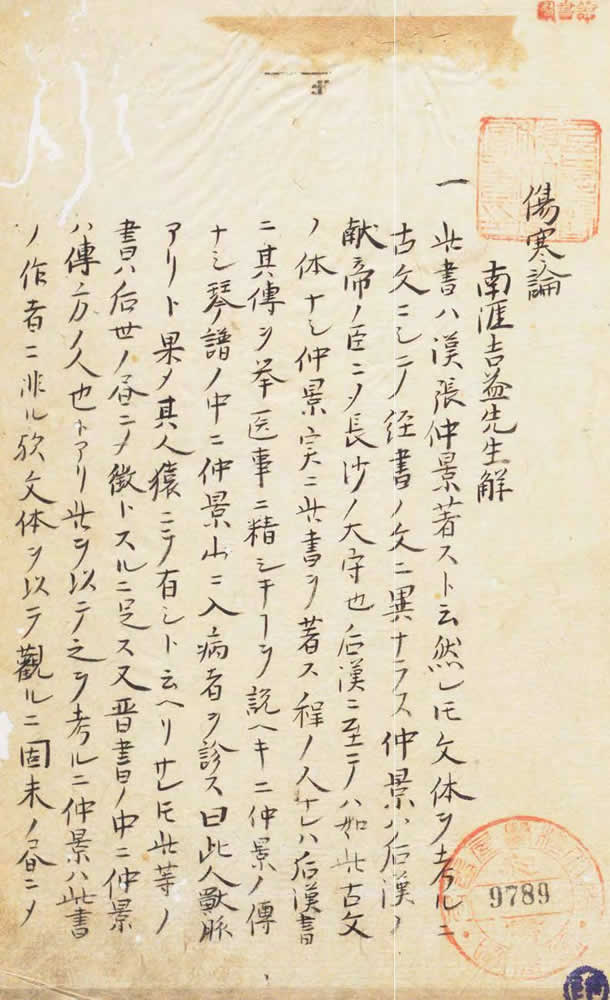 傷寒論
南涯吉益先生解
一此書ハ漢張仲景著スト云然レ𪜈文体ヲ考ルニ
古文ニシテ経書ノ文ニ異ナラス仲景ハ后漢ノ
献帝ノ臣ニメ長沙ノ大守也后漢ニ至テハ如此古文
ノ体ナシ仲景実ニ此書ヲ著ス程ノ人ナレハ后漢書
ニ其傳ヲ挙医事ニ精シキヿヲ説ヘキニ仲景ノ傳
ナシ琴譜ノ中ニ仲景山ニ入病者ヲ診ス曰此人獣脈
アリト果メ其人猿ニテ有シト云ヘリサレ𪜈此等ノ
書ハ后世ノ昏ニメ徴トスルニ足ス又晋書ノ中ニ仲景
ハ傳方ノ人也トアリ此ヲ以テ之ヲ考ルニ仲景ハ此書
ノ作者ニ非ル欤文体ヲ以テ觀ルニ固末ノ昏ニメ
9789